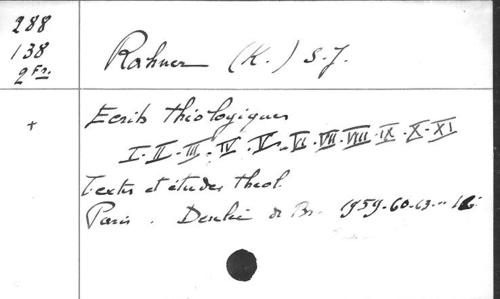 288
138
2 Fr.
Rahner (K.) S.J.
+
Ecrits théologiques
I-II-III-IV-V-VI-VII-VIII-IX-X-XI
Textes et études théol.
Paris. Desclée de Br. 1959-60-63